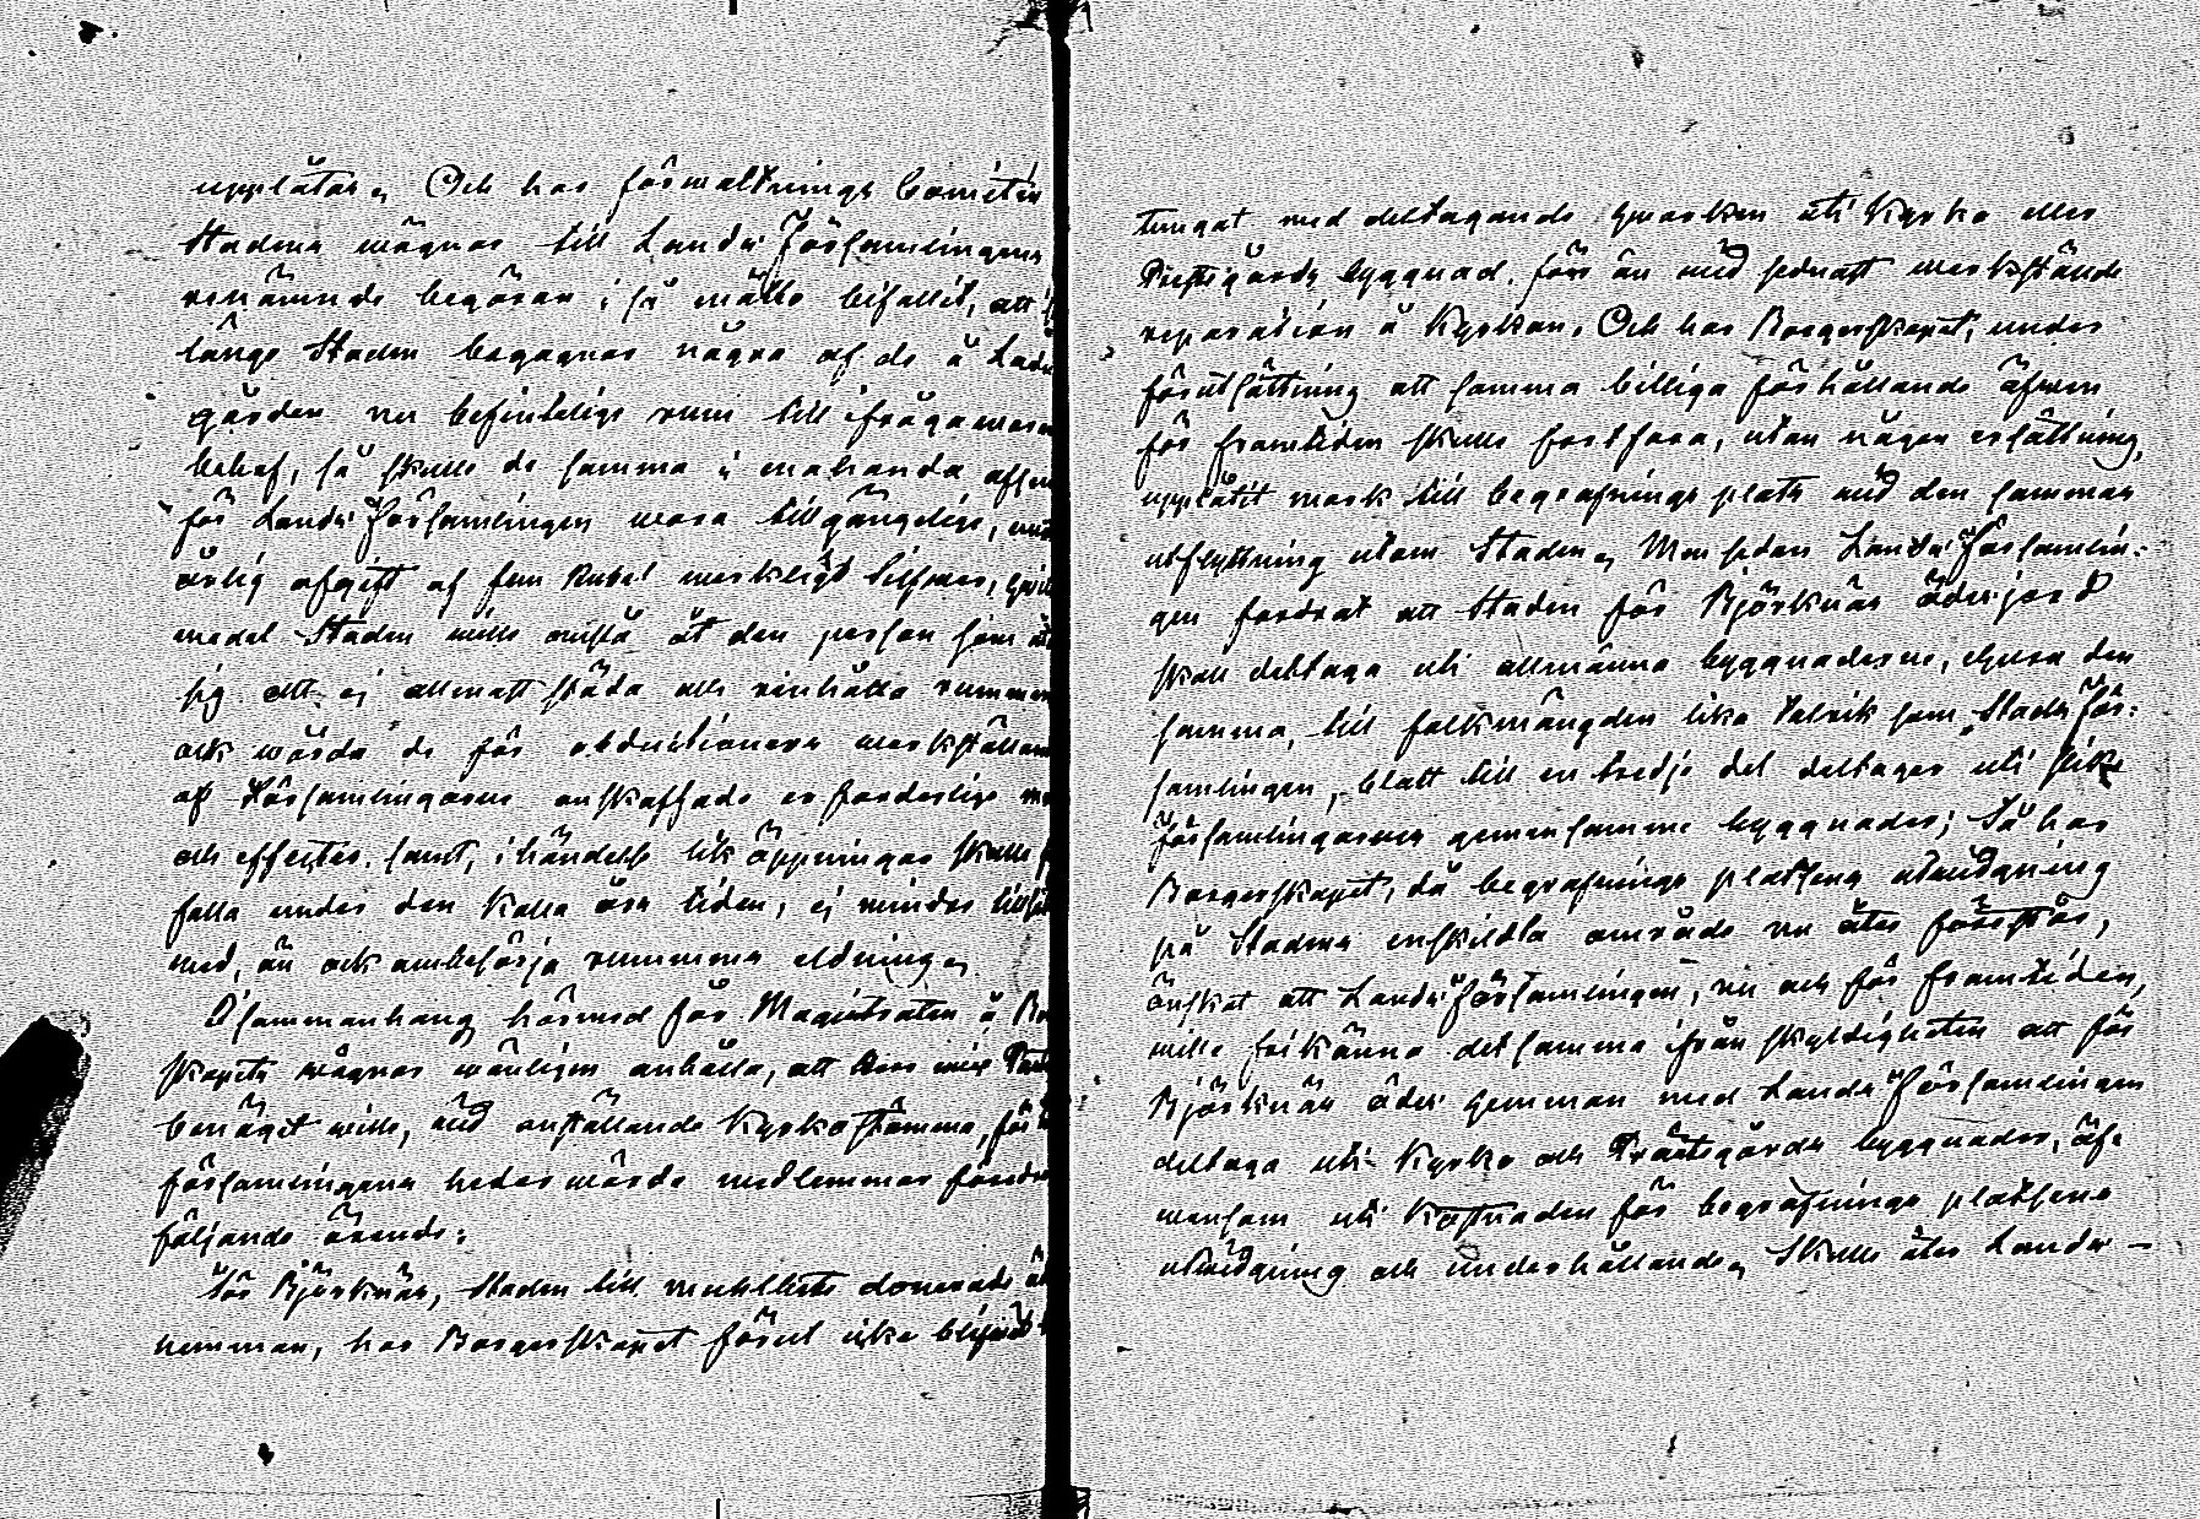 upplåtas, Och har förwaltnings Comitén
Stadens wägnar till Lands Församlingens
benämnde begäran i så måtto bifallit, att
länge Staden begagnar några af de å Ladu
gården nu befintelige rum till ifrågawaran
behof, så skulle de samma i enahanda afse
för Lands Församlingen wara tillgängelige,
årlig afgift af fem Rubel werkligt Silfwer,
medel Staden wille anslå åt den person som
sig att ej allenast städa och renhålla rummen
ock wårda de för obductioners werkställan
af Församlingarne anskaffade erforderlige
och effecter, samt, i händelse lik öppningar skulle
falla under den kalla års tiden, ej mindre
med, än ock ombesörja rummens eldning,
I sammanhang härmed får Magistraten å
skapets wägnar wänligen anhålla, att
benäget wille, wid anställande Kyrkostämma, för
församlingens hederwärde medlemmar föredra
följande ärende:
För Björknäs, Staden till donerade
hemman, har Borgerskapet förut icke blifwit
tungat med deltagande hwarken uti Kyrko eller
Prestgårds byggnad, förr än wid sednast werkstälde
reparation å Kyrkan, Och har Borgerskapet, under
förutsättning att samma billiga förhållande äfwen
för framtiden skulle fortfara, utan någon ersättning,
upplåtit mark till begrafnings plats wid den sammas
utflyttning utom Staden, Men sedan Lands Församlin-
gen fordrat att Staden för Björknäs ödesjord
skall deltaga uti allmänna byggnaderne, ehuru den
samma, till folkmängden lika talrik som Stads För-
samlingen, blott till en tredje del deltager uti slike
församlingarnes gemensamme byggnader; Så har
Borgerskapet, då begrafnings platsens utwidgning
på Stadens enskildta område nu åter förestår,
önskat att Lands Församlingen, nu och för framtiden,
wille frikänna detsamma ifrån skyldigheten att för
Björknäs ödes hemman med Lands Församlingen
deltaga uti Kyrko och Prästgårds byggnader, äf-
wensom uti Kostnaden för begrafnings platsens
utwidgning och underhållande, Skulle åter Lands-